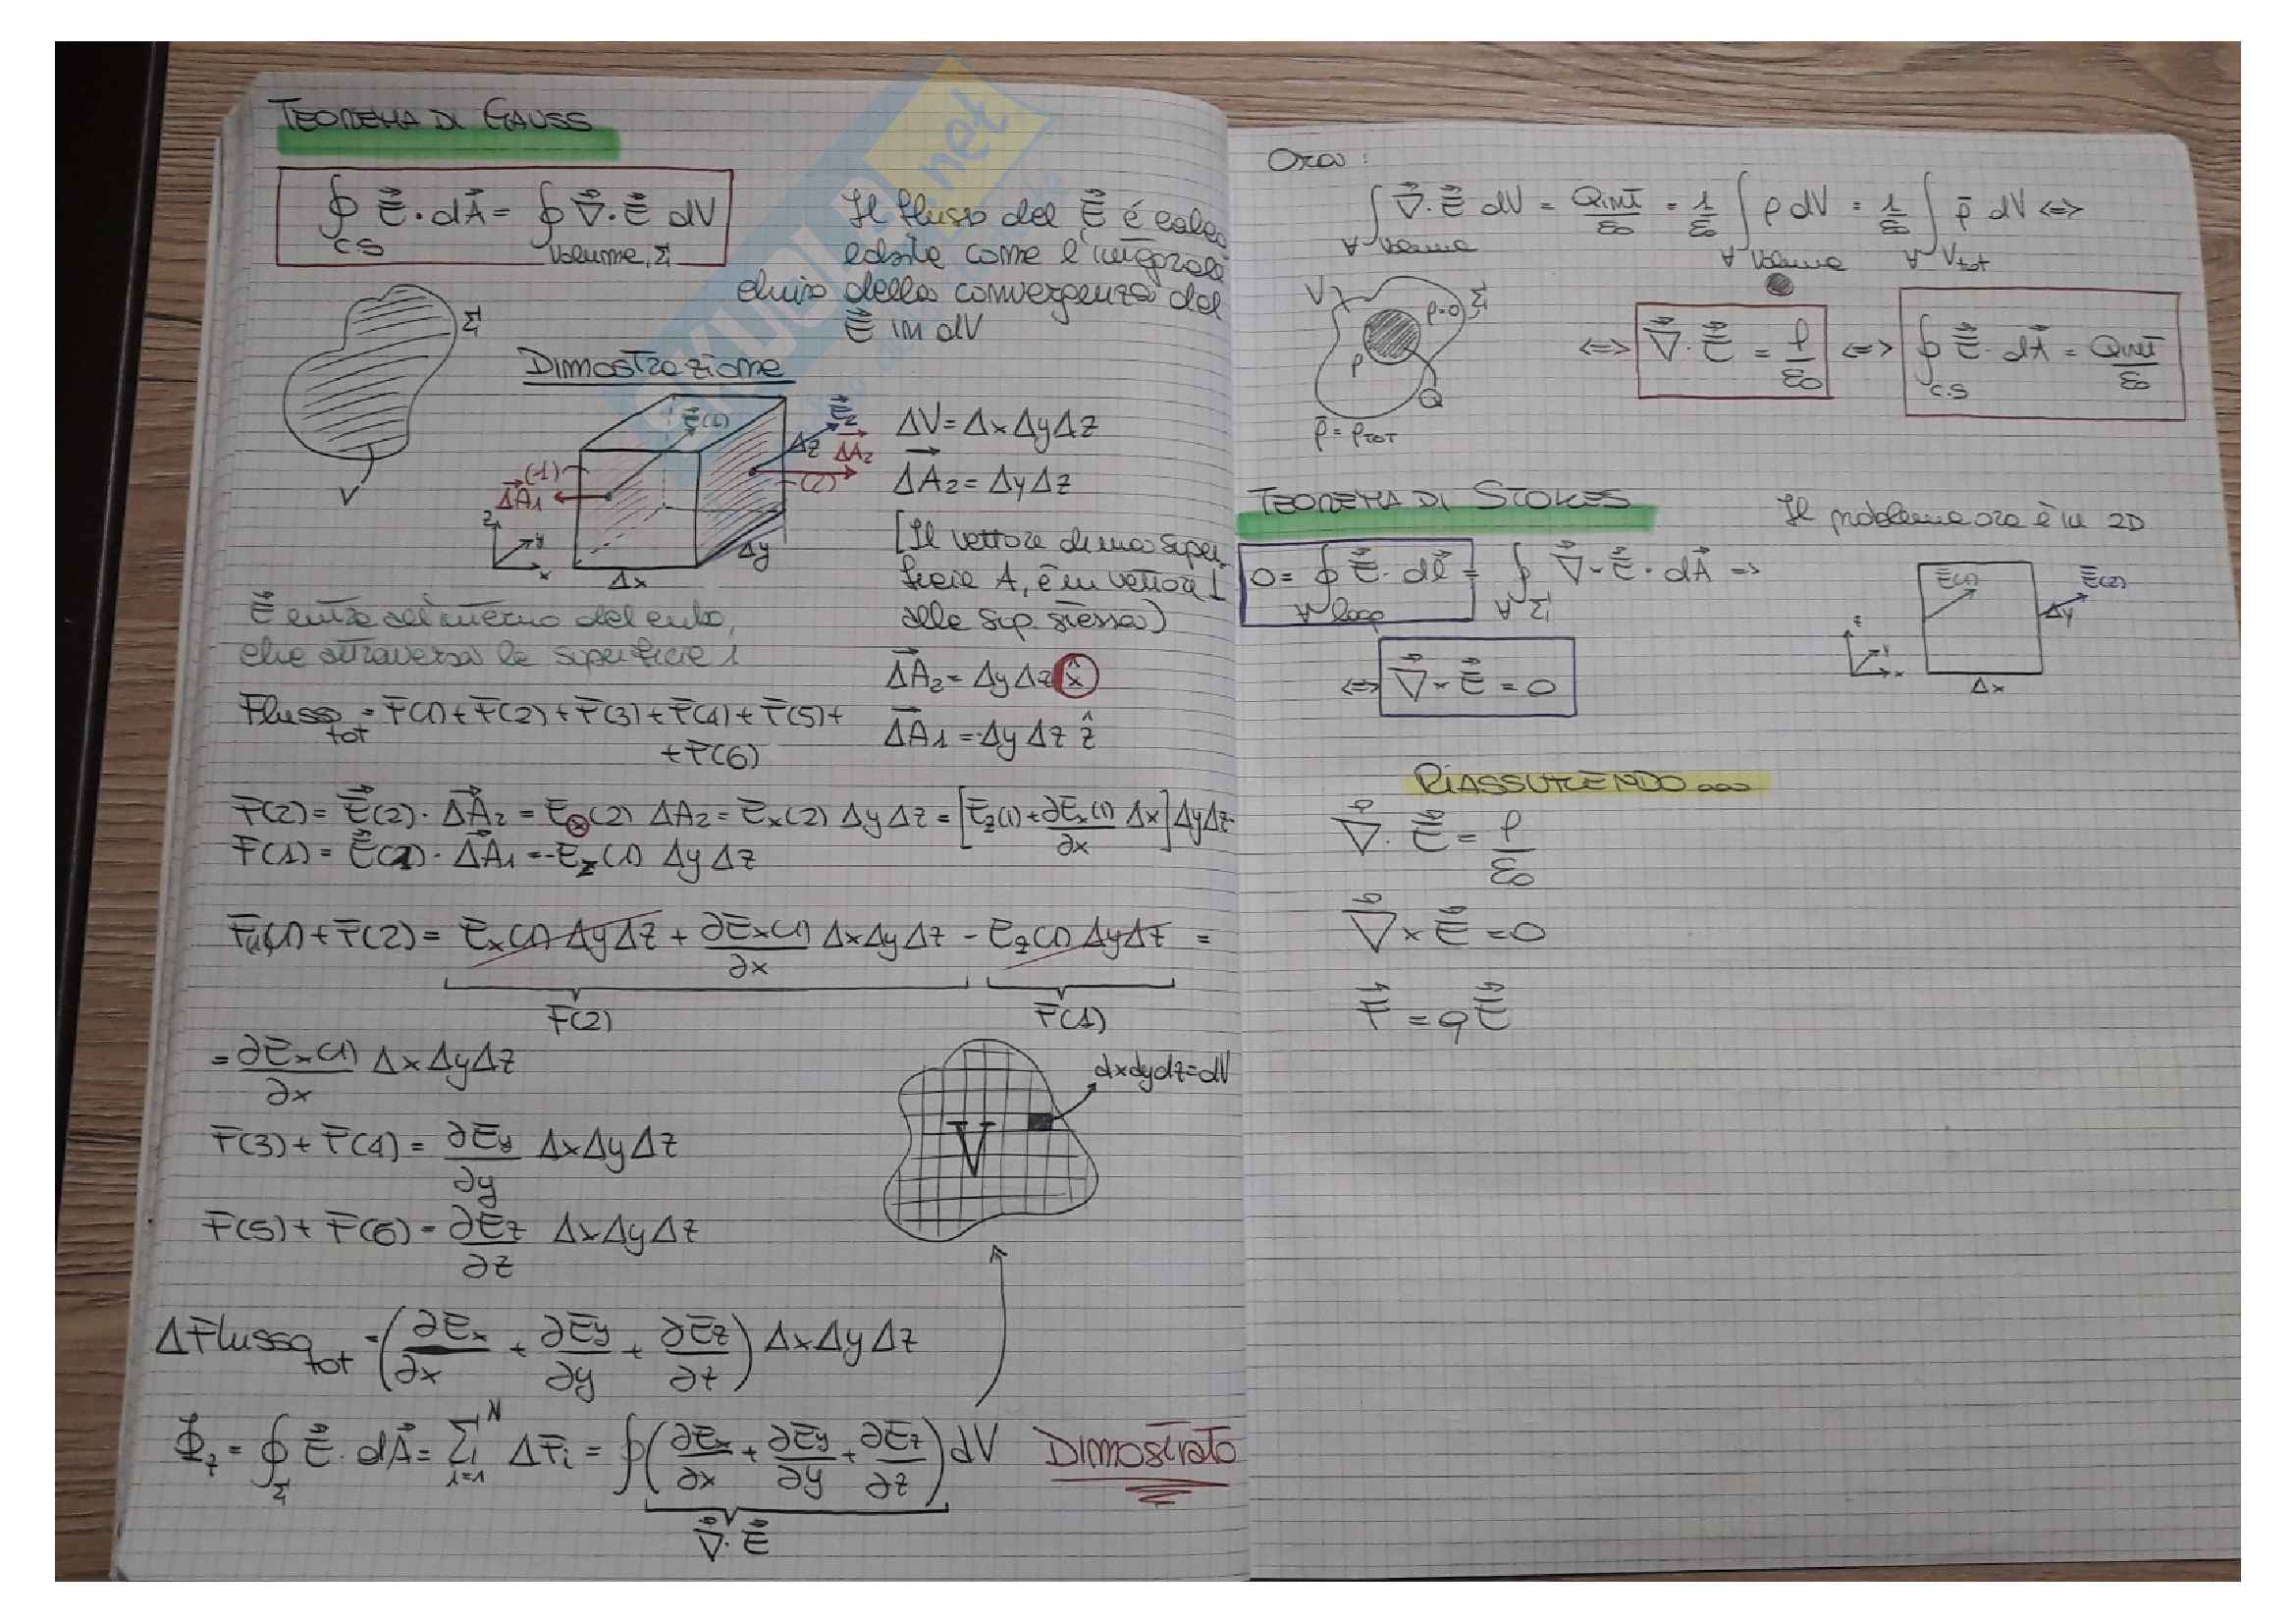 TEOREMA DI GAUSS
∮ E⃗ · dA⃗ = ∮ ∇⃗ · E⃗ dV
CS Volume, Σ
Il flusso del E⃗ é calco
labile come l'integrale
chiuso della convergenza del
E⃗ in dV
Σ
V
Dimostrazione
E⃗(1)
E⃗2
Δz
ΔA⃗2
(1)
(2)
ΔA⃗1
z
y
x
Δy
Δx
ΔV = Δx Δy Δz
ΔA⃗2 = Δy Δz
[Il vettore di una super
ficie A, è un vettore ⊥
alla sup. stessa)
ΔA⃗2 = Δy Δz x̂
ΔA⃗1 = -Δy Δz ẑ
E⃗ entra all'interno del cubo,
che attraversa la superficie 1
Flusso tot = F(1) + F(2) + F(3) + F(4) + F(5) +
+ F(6)
F(2) = E⃗(2) · ΔA⃗2 = Ex(2) ΔA2 = Ex(2) Δy Δz = [Ez(1) + ∂Ex(1)/∂x Δx] Δy Δz
F(1) = E⃗(1) · ΔA⃗1 = -Ez(1) Δy Δz
F(1) + F(2) = Ex(1) Δy Δz + ∂Ex(1)/∂x Δx Δy Δz - Ez(1) Δy Δz =
F(2) F(1)
= ∂Ex(1)/∂x Δx Δy Δz
F(3) + F(4) = ∂Ey/∂y Δx Δy Δz
F(5) + F(6) = ∂Ez/∂z Δx Δy Δz
dxdydz = dV
V
ΔFlusso tot = (∂Ex/∂x + ∂Ey/∂y + ∂Ez/∂z) Δx Δy Δz
Φz = ∮Σ E⃗ · dA⃗ = Σ i=1 N ΔFi = ∮ (∂Ex/∂x + ∂Ey/∂y + ∂Ez/∂z) dV Dimostrato
∇⃗ · E⃗
Ora :
∫ ∇⃗ · E⃗ dV = Qint/ε0 = 1/ε0 ∫ ρ dV = 1/ε0 ∫ ρ̄ dV <=>
∀ Volume ∀ Volume ∀ Vtot
V
Σ
ρ=0
ρ
Q
ρ̄ = ρTOT
<=> ∇⃗ · E⃗ = ρ/ε0 <=> ∮ E⃗ · dA⃗ = Qint/ε0
C.S
TEOREMA DI STOKES
Il problema ora è in 2D
0 = ∮ E⃗ · dl⃗ = ∮ ∇⃗ × E⃗ · dA⃗ =>
∀ loop ∀ Σ
<=> ∇⃗ × E⃗ = 0
E⃗(1)
E⃗(2)
Δy
z
y
x
Δx
RIASSUMENDO...
∇⃗ · E⃗ = ρ/ε0
∇⃗ × E⃗ = 0
F⃗ = qE⃗
SKUOLA.net